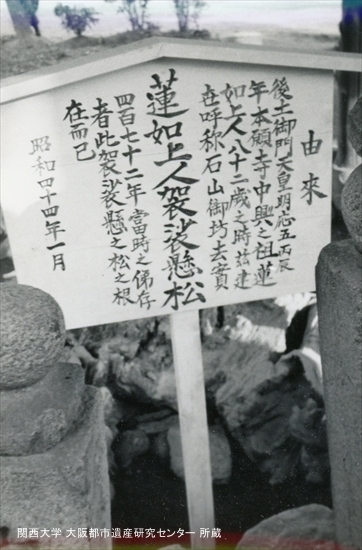 由来
後土御門天皇明応五丙辰
年本願寺中興之祖蓮
如上人八十二歳之時茲建
古呼称石山御坊去實
蓮如上人袈裟懸松
四百七十二年當時之俤存
者此袈裟懸之松之根
在而已
昭和四十四年一月
関西大学 大阪都市遺産研究センター 所蔵